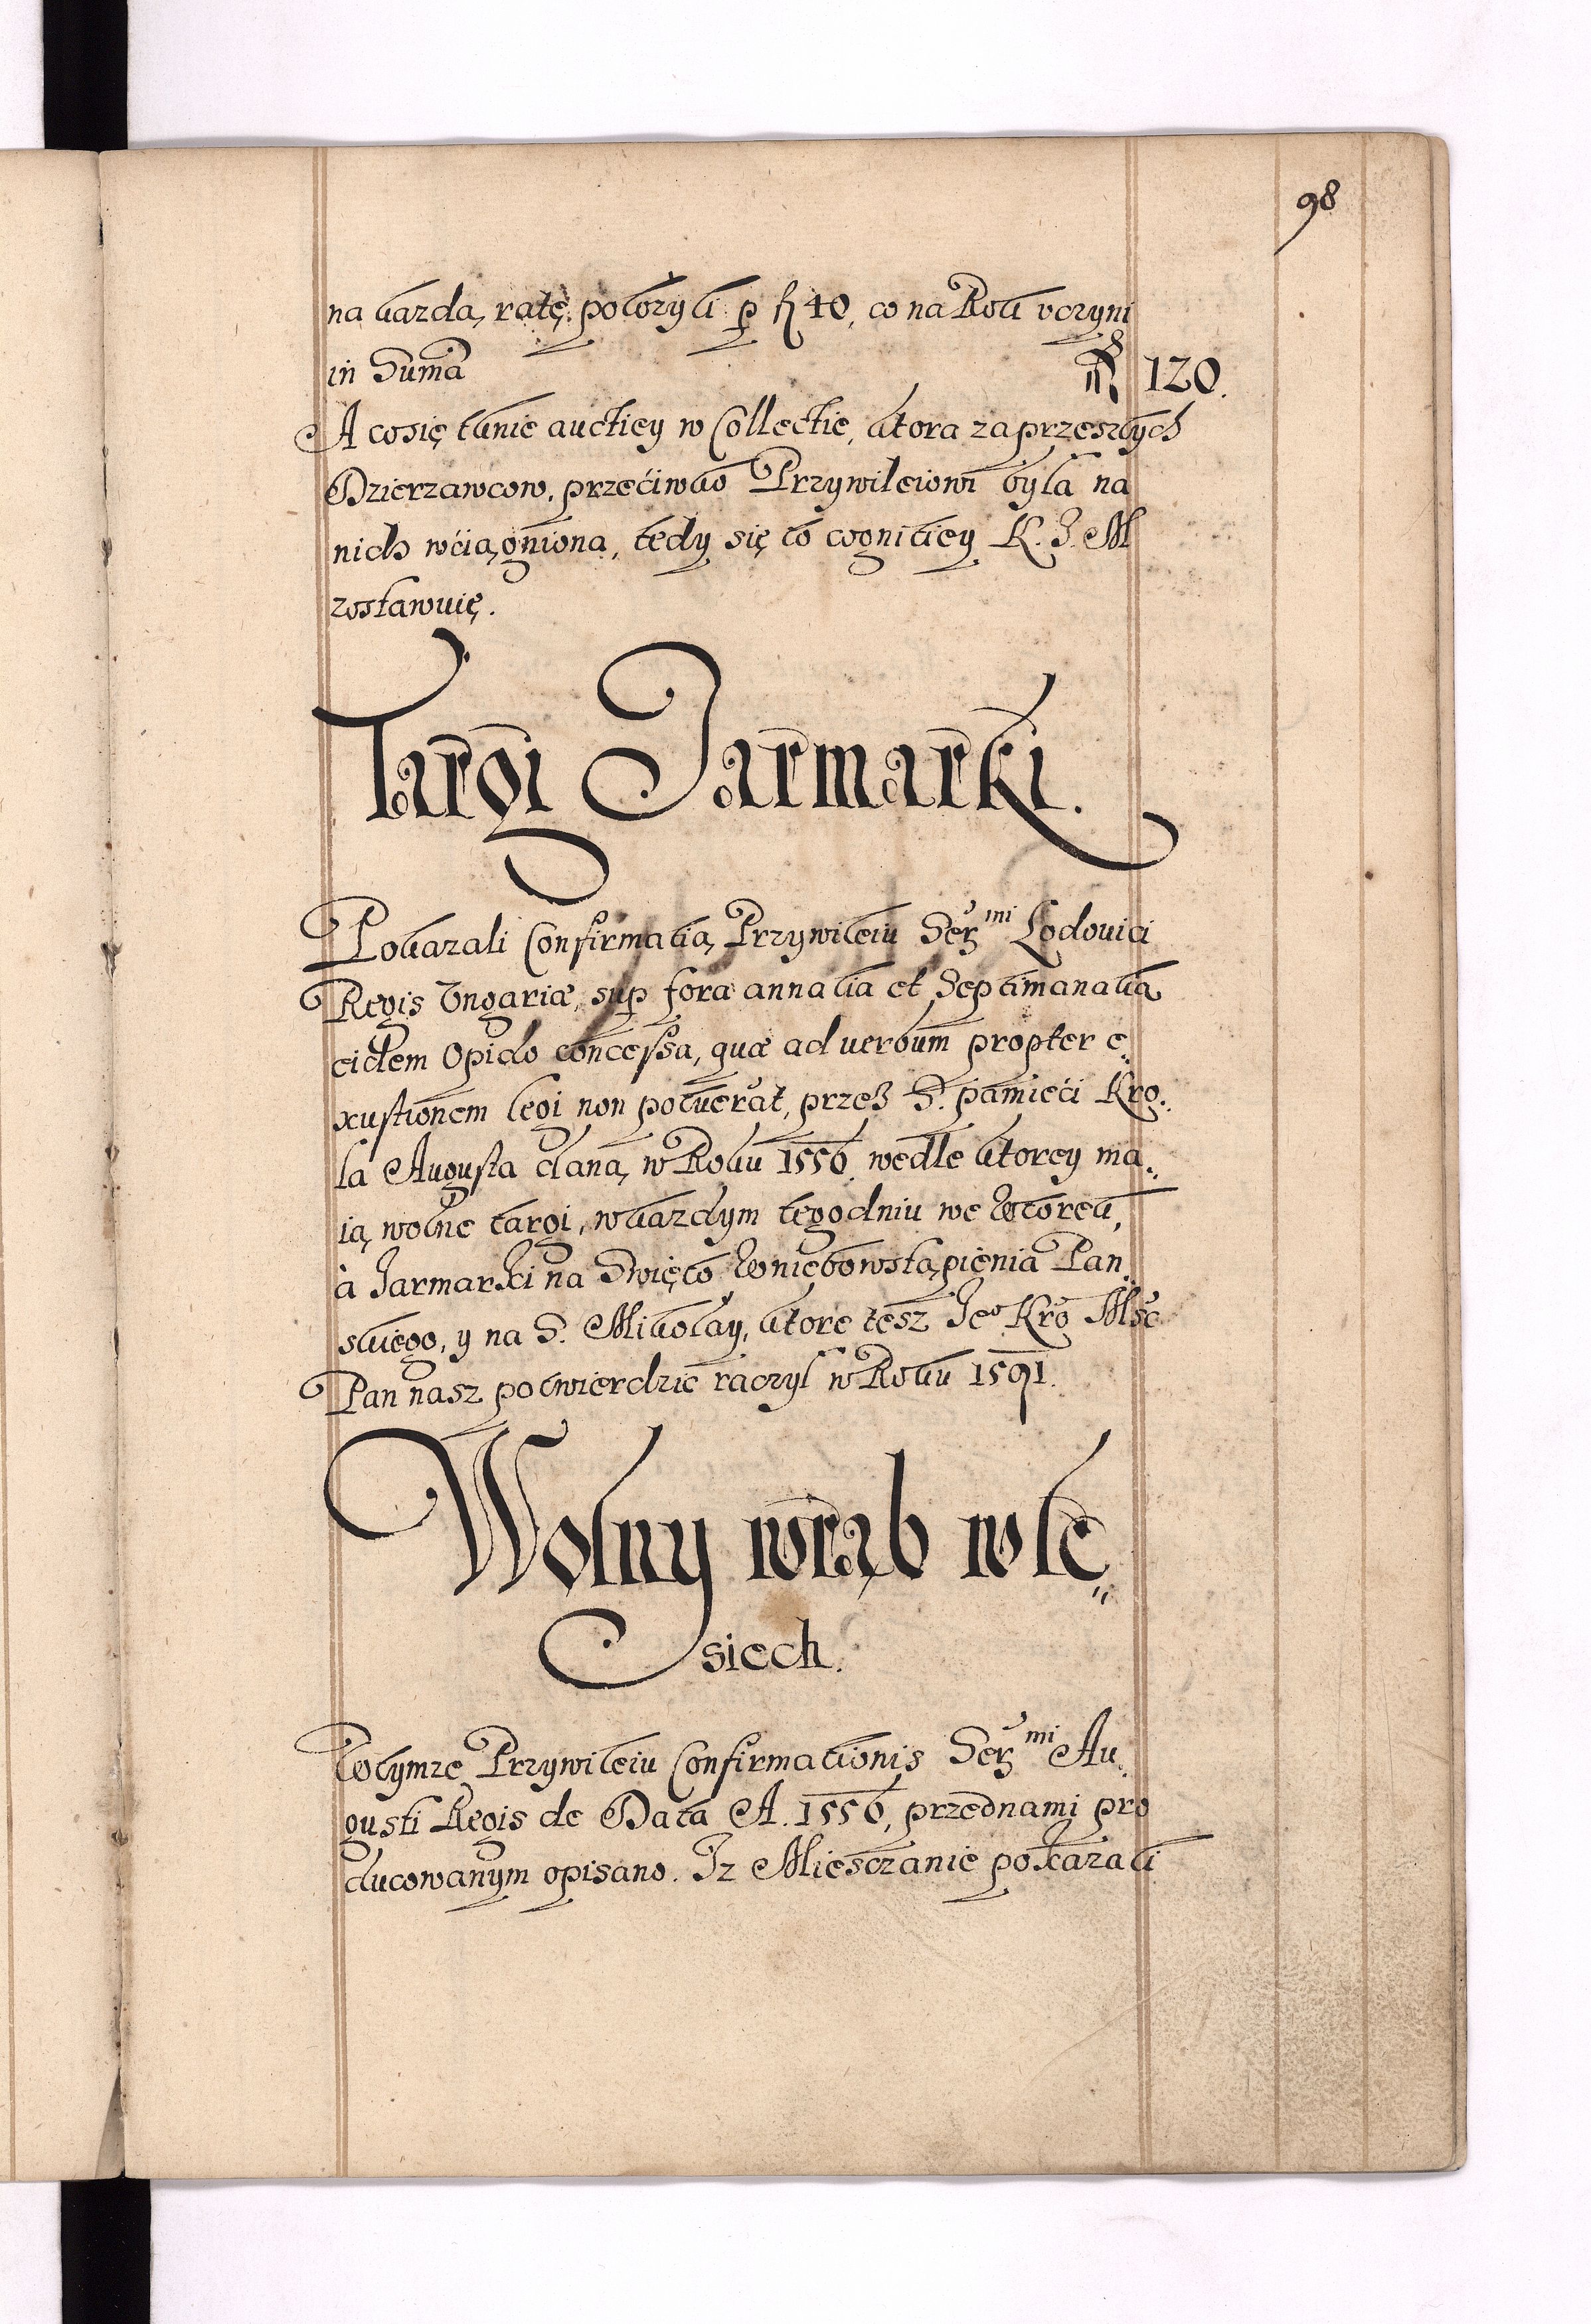 98
na każdą ratę położyli p fl 40, co na Rok vczyni
in Suma fl 120.
A cosię tknie auctiey w Collectie, ktora zaprzeszłych
Dzierzawcow, przećiwko Przywileiowi była na
nich wćiągniona, tedy się to cognitiey K. J. M
zostawuię.
Targi Jarmarki.
Pokazali Confirmatią Przywileiu Ser^mi Lodouici
Regis Vngariæ, sup fora annalia et Septimanalia
eidem Opido concessa, quæ ad verbum propter e„
xustionem legi non potuerat, przez S. pamięći Kro„
la Augusta daną, w Roku 1556. wedle ktorey ma„
ią wolne targi, w każdym tegodniu we Wtorek,
à Jarmarki na Swięto Wniebowstąpienia Pan„
skiego, y na S. Mikołay, ktore tesz Jeo Kro Msc
Pan nasz potwierdzić raczył w Roku 1591.
Wolny wrąb w le„
siech.
Wtymze Przywileiu Confirmationis Ser^mi Au„
gusti Regis de Data A. 1556, przednami pro
ducowanym opisano. Iz Miesczanie pokazali